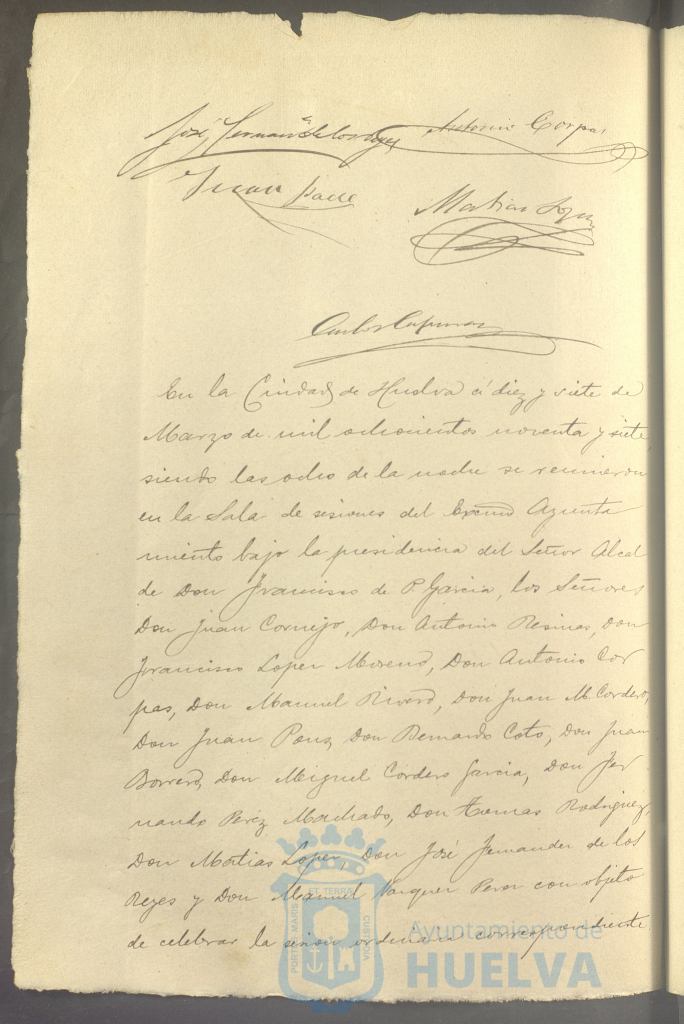 José Fernandz de los Reyes Antonio Corpas
Juan
Matias Lopez
Carlos
En la Ciudad de Huelva á diez y siete de
Marzo de mil ochocientos noventa y siete,
siendo las ocho de la noche se reunieron
en la Sala de sesiones del Excmo Ayunta
miento bajo la presidencia del Señor Alcal
de Don Francisco de P. Garcia, los Señores
Don Juan Cornejo, Don Antonio Resinas, Don
Francisco Lopez Moreno, Don Antonio Cor
pas, Don Manuel Rivero, Don Juan M. Cordero,
Don Juan Ponz, Don Bernardo Coto, Don Juan
Borrero, Don Miguel Cordero Garcia, Don Fer
nando Perez Machado, Don Tomas Rodriguez,
Don Matias Lopez, Don José Fernandez de los
Reyes y Don Manuel Vazquez Perez con objeto
de celebrar la sesion ordinaria correspondiente.
PORTUS MARIS ET TERRAE CUSTODIA
Ayuntamiento de
HUELVA